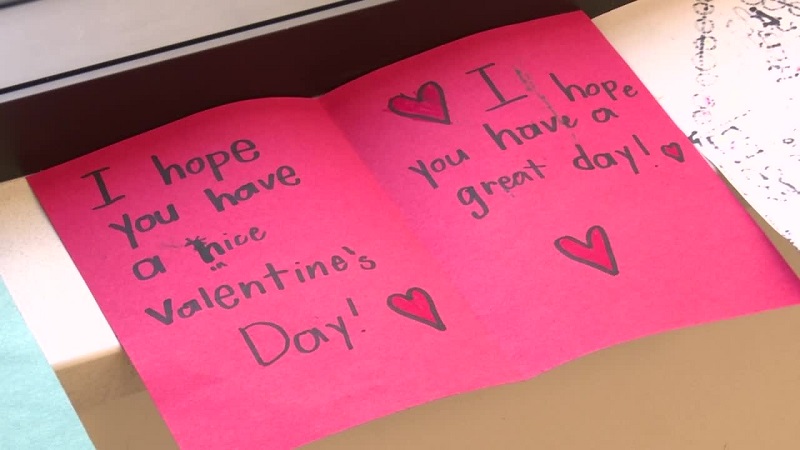 I hope
you have
a nice
Valentine's
Day!
I hope
you have a
great day!